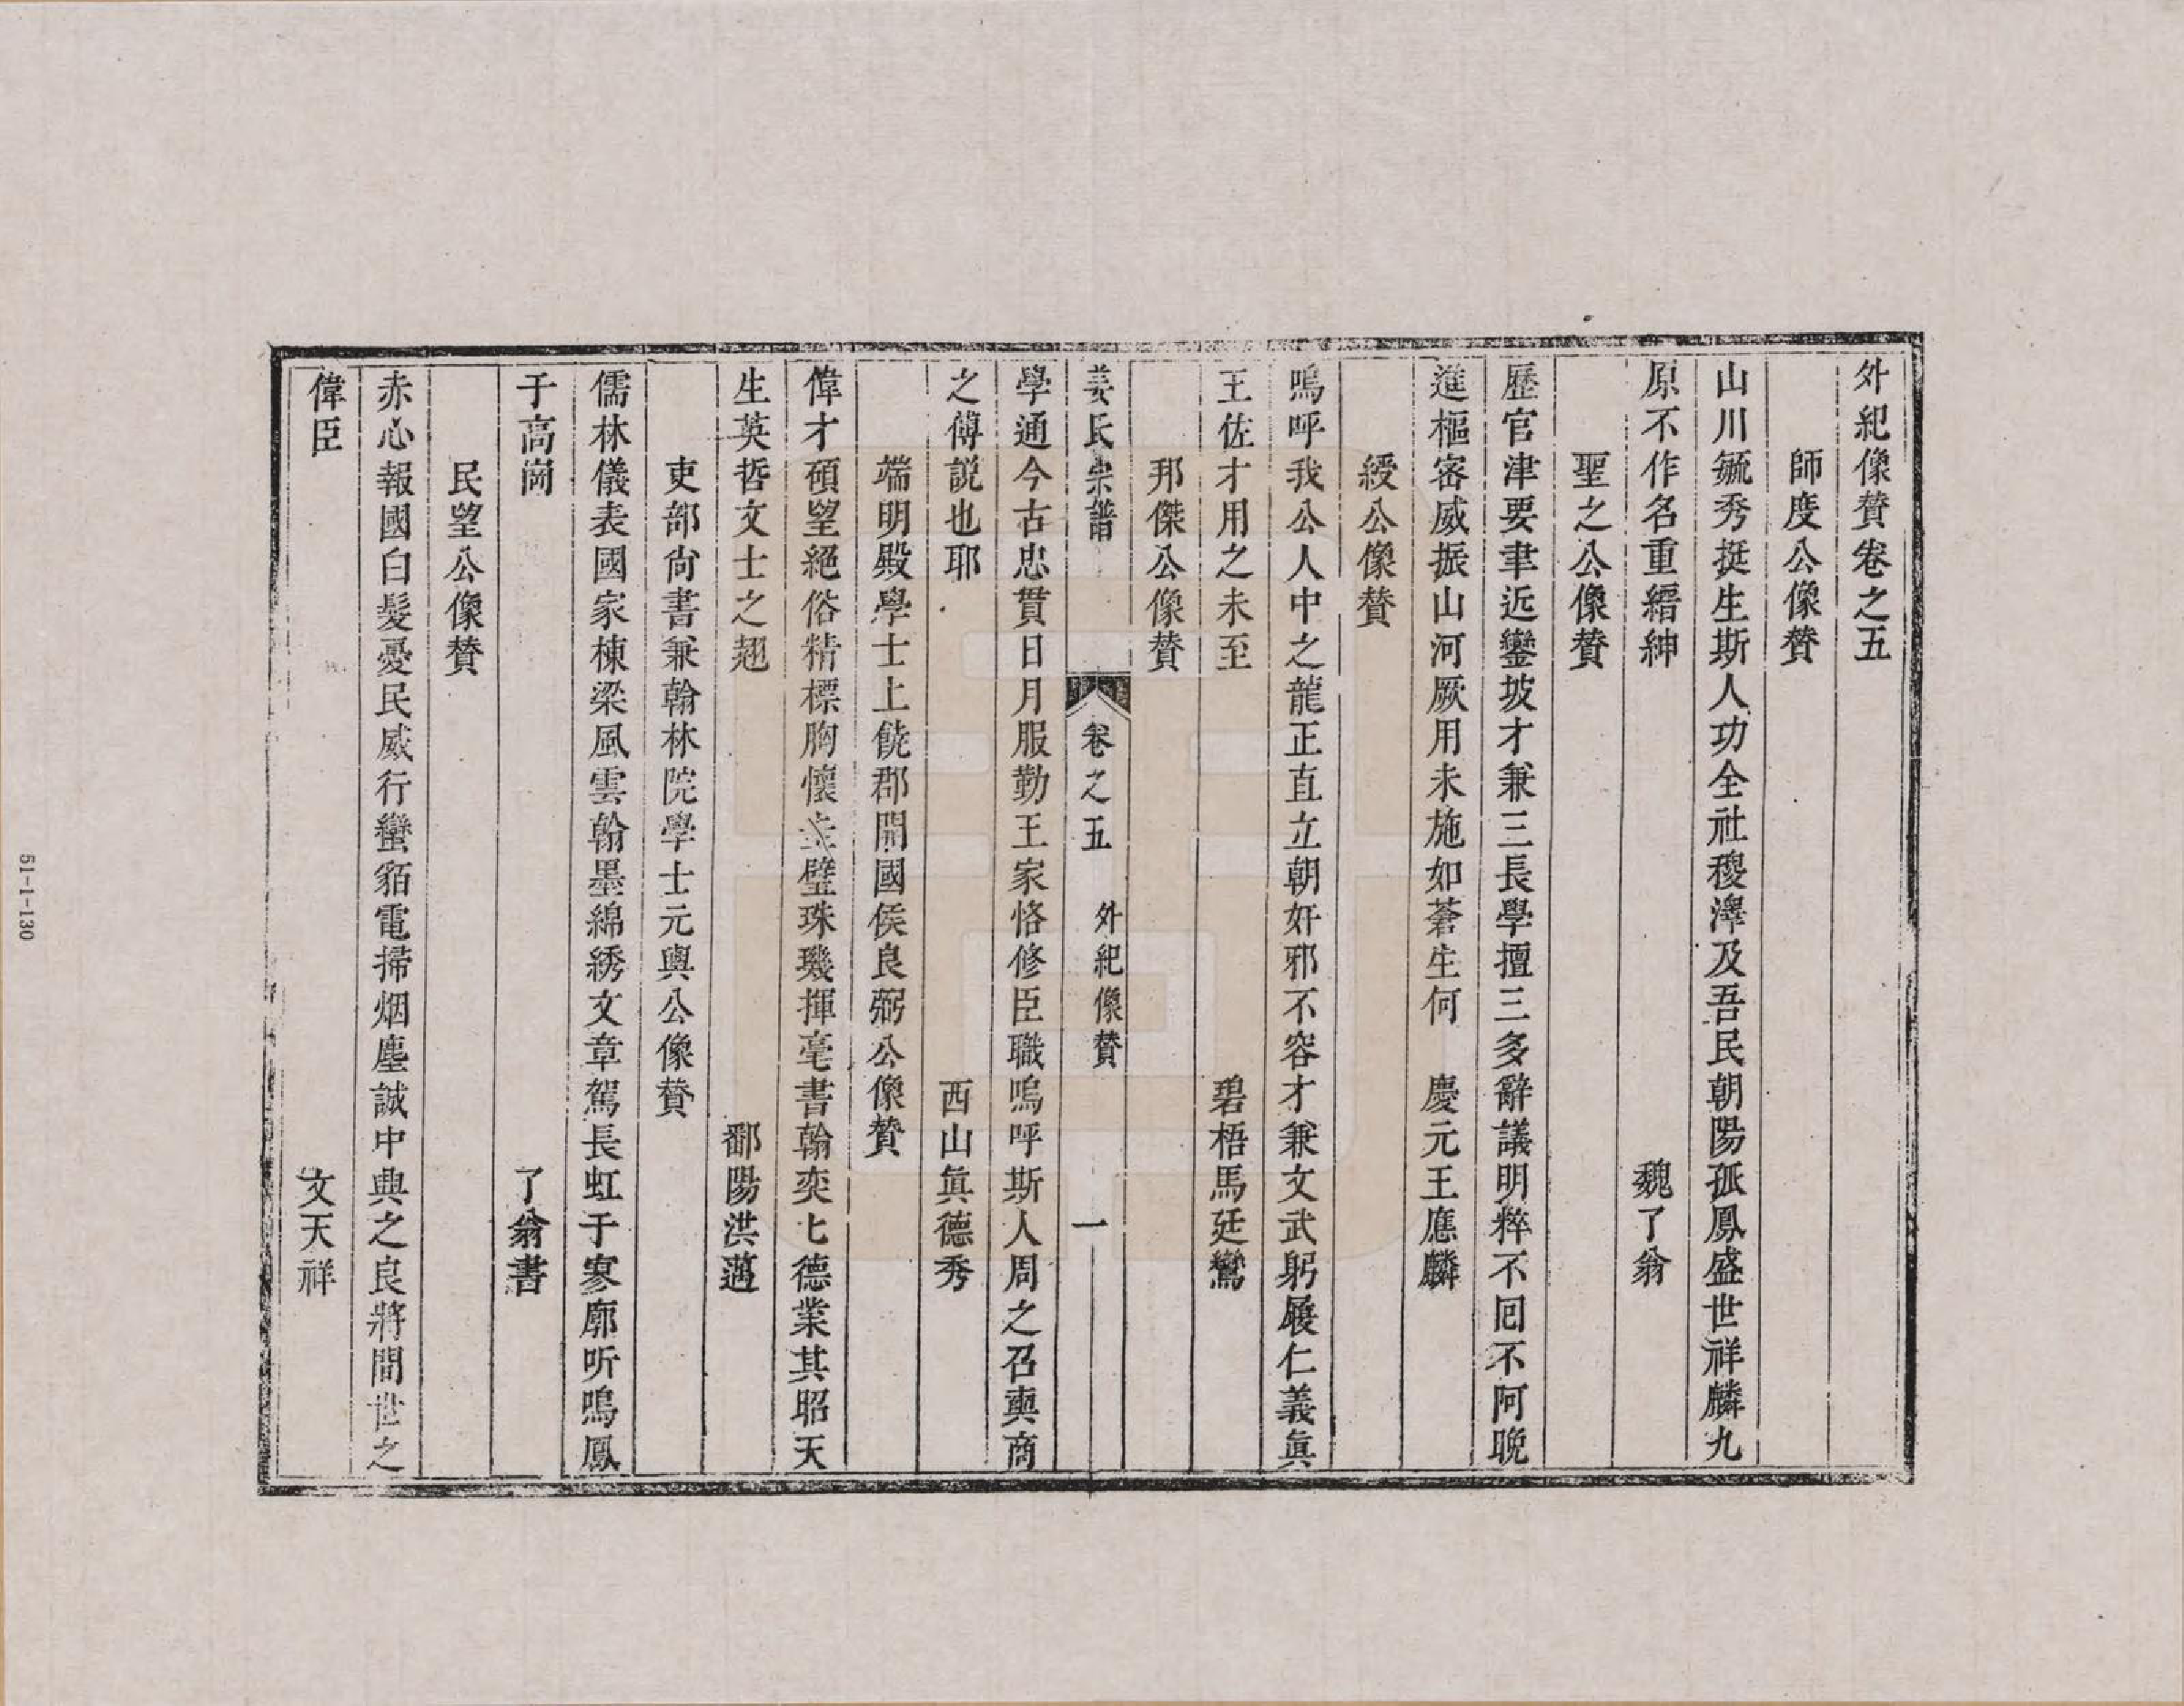 外紀像贊卷之五
師度公像贊
山川毓秀挺生斯人功全社稷澤及吾民朝陽孤鳳盛世祥麟九
原不作名重縉紳　魏了翁
聖之公像贊
歷官津要聿近鑾坡才兼三長學擅三多辭議明粹不回不阿晚
進樞密威振山河厥用未施如蒼生何　慶元王應麟
綬公像贊
嗚呼我公人中之龍正直立朝奸邪不容才兼文武躬履仁義眞
王佐才用之未至　碧梧馬廷鸞
邦傑公像贊
姜氏宗譜　卷之五　外紀像贊　一
學通今古忠貫日月服勤王家恪修臣職嗚呼斯人周之召奭商
之傅説也耶　西山眞德秀
端明殿學士上饒郡開國侯良弼公像贊
偉才碩望絕俗精標胸懷圭璧珠璣揮毫書翰奕七德業其昭天
生英哲文士之翹　鄱陽洪邁
吏部尙書兼翰林院學士元輿公像贊
儒林儀表國家棟梁風雲翰墨綿綉文章駕長虹于寥廓听鳴鳳
于高崗　了翁書
民望公像贊
赤心報國白髮憂民威行蠻貊電掃烟塵誠中典之良將間世之
偉臣　文天祥
51-1-130